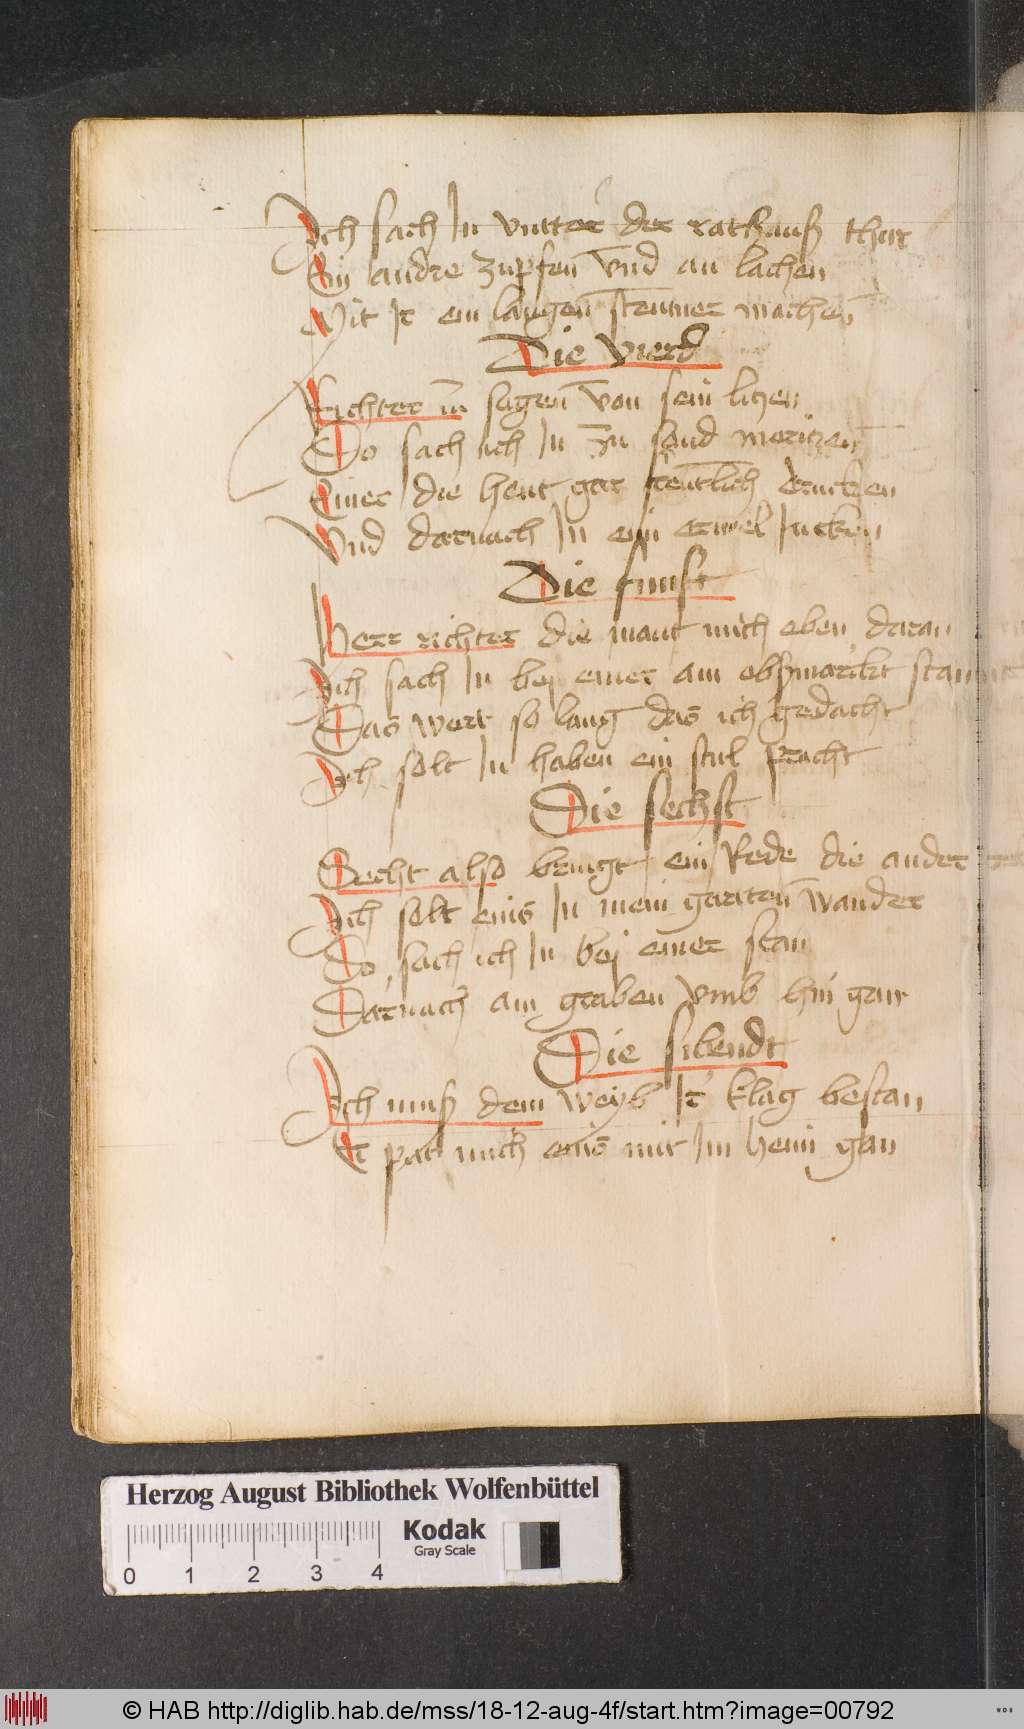 Ich sach In vntter der rathauß thur
Ein andre zupfen vnd an lachen
Mit Ir ein langen stentner machen
Die vierd
Richter in sagen von sein liczen
Do sach ich In zu sand moriczen
Einer die hent gar freuntlich drucken
Vnd darnach In ein ermel Jucken
Die funft
Herr richter die mant mich eben daran
Ich sach In bey einer am obsmarckt stan
Das wert so lang das ich gedacht
Ich solt In haben ein stul pracht
Die sechst
Secht also bringt ein Rede die ander
Ich solt eins In mein gartten wander
Do sach ich In bey einer stan
Darnach am graben vmb hin gan
Die sibendt
Ich muß dem weyb Ir klag bestan
Er pat mich eins mit Im heim gan
Herzog August Bibliothek Wolfenbüttel
Kodak
Gray Scale
0 1 2 3 4
© HAB http://diglib.hab.de/mss/18-12-aug-4f/start.htm?image=00792